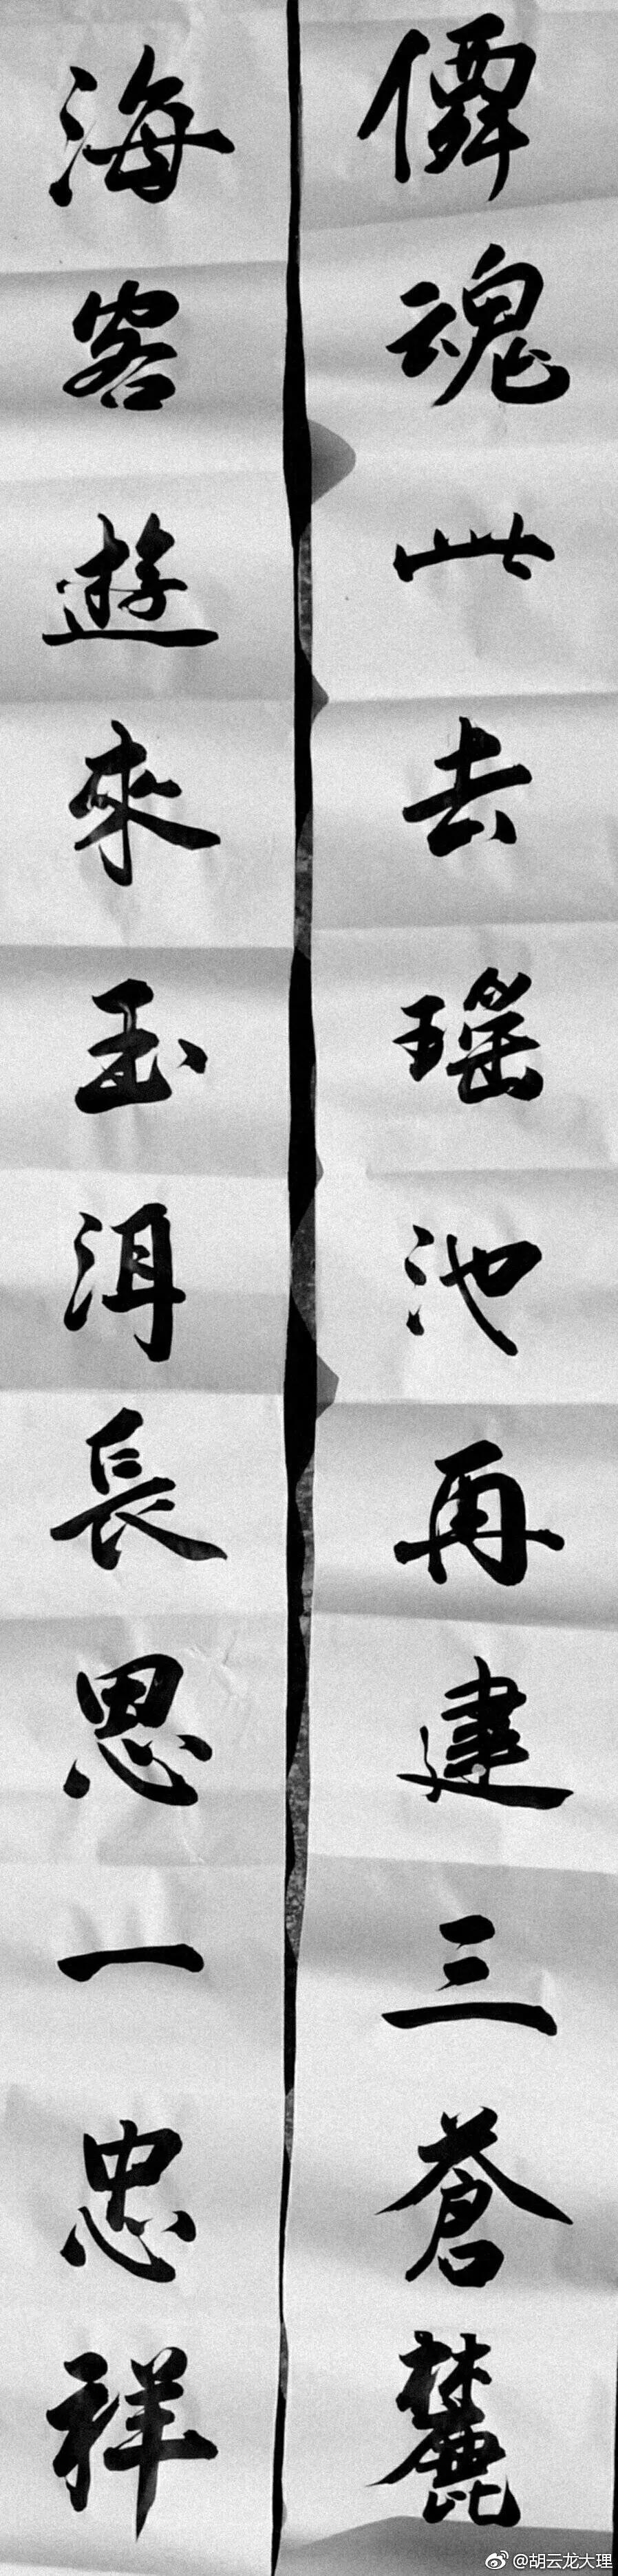 僊魂此去瑶池再建三蒼麓
海客遊來玉洱長思一忠祥
@胡云龙大理